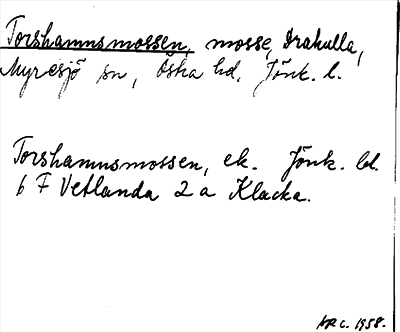 Torshamnsmossen, mosse, Drakulla,
Myresjö sn, Östra hd, Jönk. l.
Torshamnsmossen, ek. Jönk. bl.
6 F Vetlanda 2 a Klacka.
c. 1958.